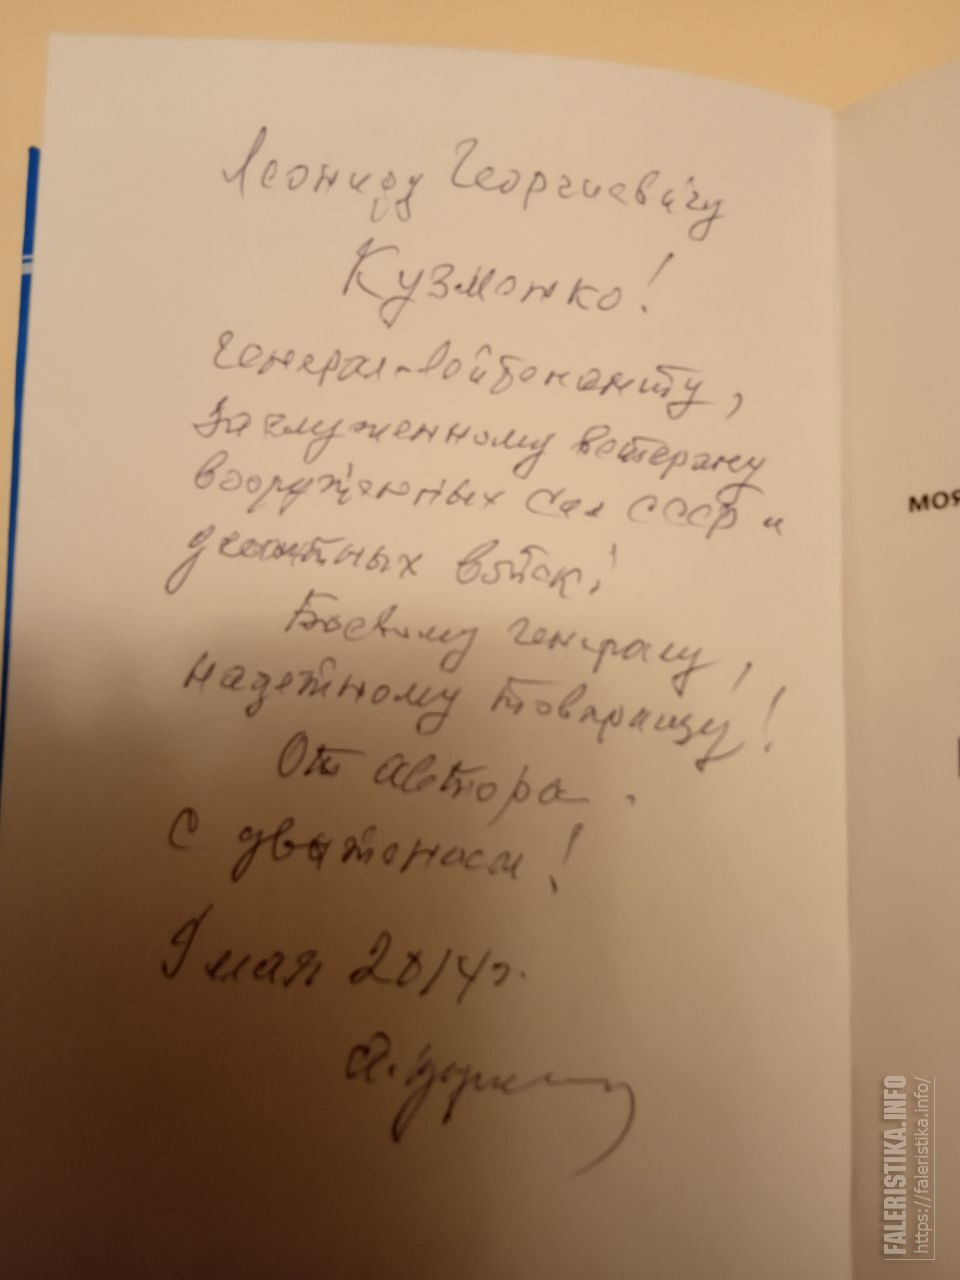 Леониду Георгиевичу
Кузменко!
генерал-лейтенанту,
заслуженному ветерану
вооруженных Сил СССР и
десантных войск!
Боевому генералу,
надежному товарищу!
От автора.
С уважением!
9 мая 2014г.
МОЯ
FALERISTIKA.INFO
https://faleristika.info/